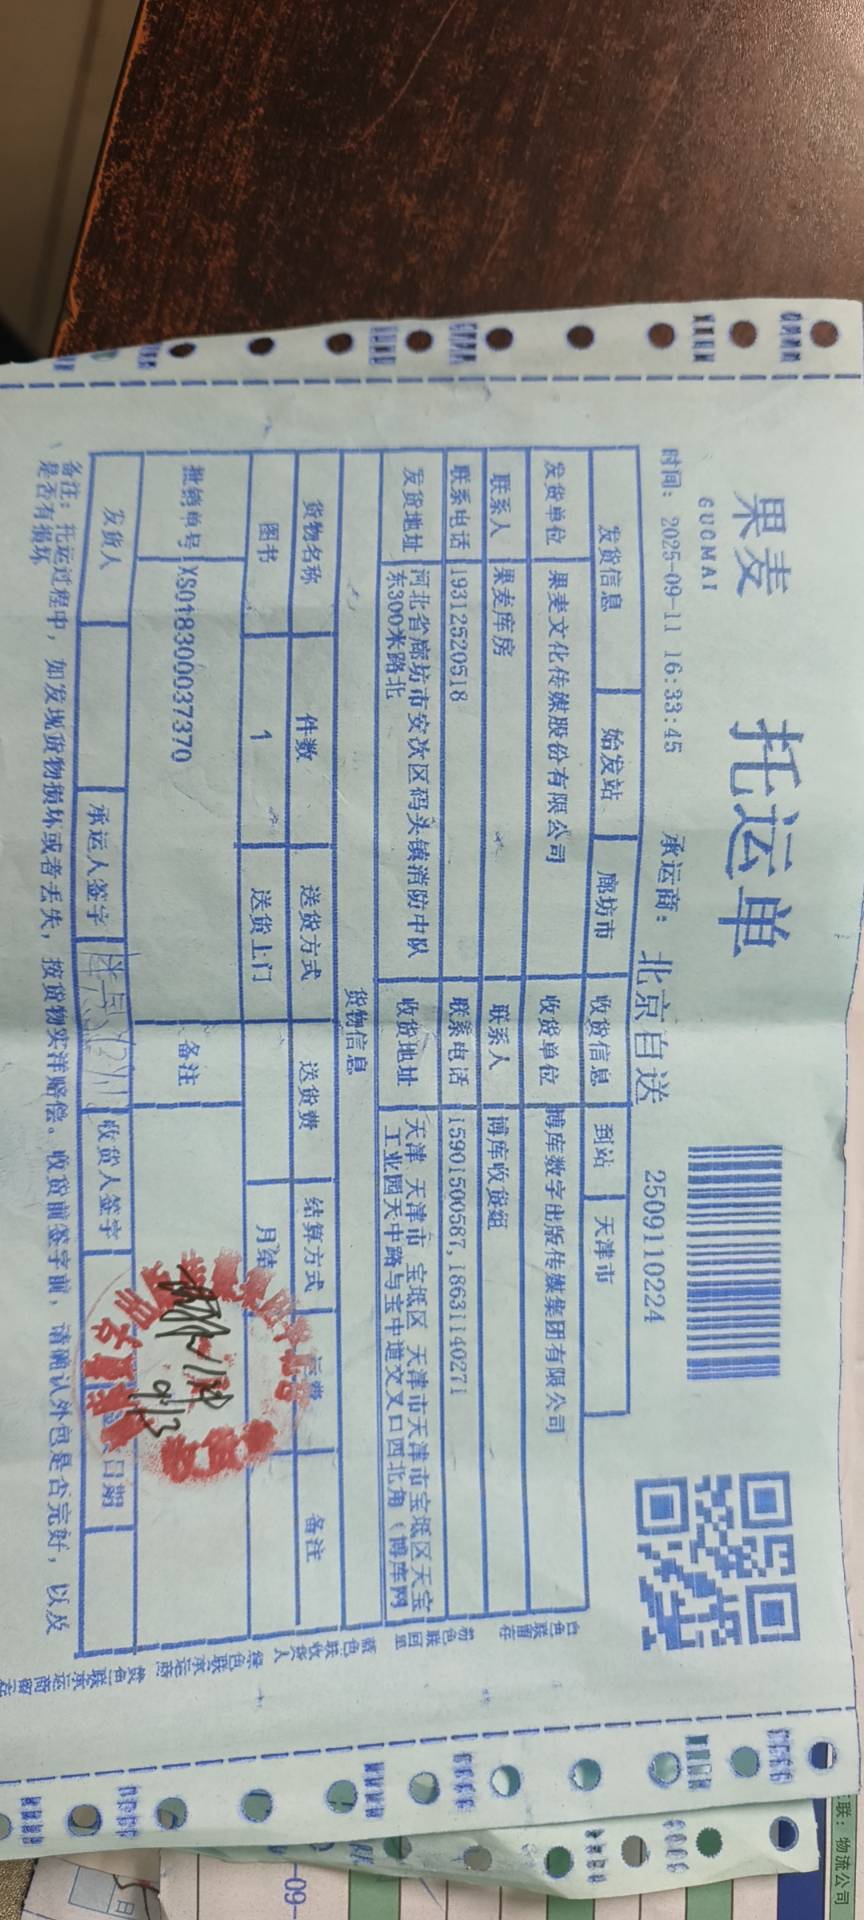 果麦
GUOMAI
托运单
时间: 2025-09-11 16:33:45 承运商: 北京自送 2509110224
发货信息 始发站 廊坊市 收货信息 到站 天津市
发货单位 果麦文化传媒股份有限公司 收货单位 博库数字出版传媒集团有限公司
联系人 果麦库房 联系人 博库收货组
联系电话 19312520518 联系电话 15901500587,18631140271
发货地址 河北省廊坊市安次区码头镇消防中队
东300米路北
收货地址 天津 天津市 宝坻区 天津市天津市宝坻区天宝
工业园天中路与宝中道交叉口西北角（博库网
货物信息
货物名称 件数 送货方式 送货费 结算方式 运费 备注
图书 1 送货上门 月结
报销单号 XS018300037370 备注
9/13
发货人 承运人签字 收货人签字 日期
备注: 托运过程中, 如发现货物损坏或者丢失, 按货物实洋赔偿。收货前签字前, 请确认外包是否完好, 以及
是否有损坏
白色联留存
粉色联回单
蓝色联收货人
绿色联承运商
黄色联承运商留存
联: 物流公司
-09-
日